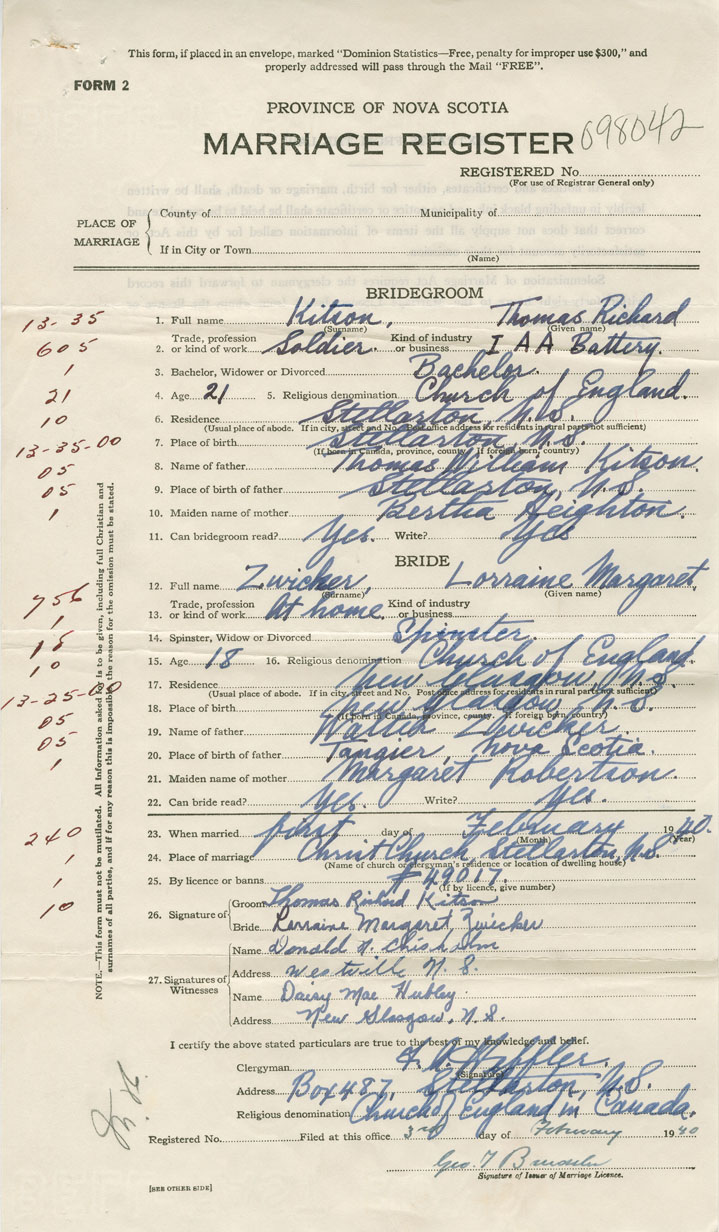 This form, if placed in an envelope, marked "Dominion Statistics—Free, penalty for improper use $300," and
properly addressed will pass through the Mail "FREE".
FORM 2
PROVINCE OF NOVA SCOTIA
MARRIAGE REGISTER 098042
REGISTERED No.
(For use of Registrar General only)
PLACE OF MARRIAGE
County of Municipality of
If in City or Town
(Name)
BRIDEGROOM
13-35 1. Full name Kitson, Thomas Richard
(Surname) (Given name)
605 2. Trade, profession or kind of work Soldier. Kind of industry or business I AA Battery.
1 3. Bachelor, Widower or Divorced Bachelor.
21 4. Age 21 5. Religious denomination Church of England.
10 6. Residence Stellarton, N.S.
(Usual place of abode. If in city, street and No. Post office address for residents in rural parts not sufficient)
13-35-00 7. Place of birth Stellarton, N.S.
(If born in Canada, province, county. If foreign born, country)
05 8. Name of father Thomas William Kitson.
05 9. Place of birth of father Stellarton, N.S.
1 10. Maiden name of mother Bertha Heighton.
11. Can bridegroom read? Yes. Write? Yes
BRIDE
756 12. Full name Zwicker, Lorraine Margaret,
(Surname) (Given name)
1 13. Trade, profession or kind of work At home. Kind of industry or business
14. Spinster, Widow or Divorced Spinster.
18 15. Age 18 16. Religious denomination Church of England.
10 17. Residence New Glasgow, N.S.
(Usual place of abode. If in city, street and No. Post office address for residents in rural parts not sufficient)
13-25-00 18. Place of birth New Glasgow, N.S.
(If born in Canada, province, county. If foreign born, country)
05 19. Name of father Walter Zwicker.
05 20. Place of birth of father Tangier, Nova Scotia.
1 21. Maiden name of mother Margaret Robertson.
22. Can bride read? Yes. Write? Yes.
240 23. When married first day of February 1940.
(Month) (Year)
1 24. Place of marriage Christ Church, Stellarton, N.S.
(Name of church or clergyman's residence or location of dwelling house)
1 25. By licence or banns #49017.
(If by licence, give number)
10 26. Signature of
Groom Thomas Richard Kitson
Bride Lorraine Margaret Zwicker
27. Signatures of Witnesses
Name Donald N. Chisholm
Address Westville N.S.
Name Daisy Mae Hubley.
Address New Glasgow, N.S.
I certify the above stated particulars are true to the best of my knowledge and belief.
Clergyman
(Signature)
Address Box 487, Stellarton, N.S.
Religious denomination Church of England in Canada.
Registered No. Filed at this office 3rd day of February 1940
Geo. T
Signature of Issuer of Marriage Licence.
[SEE OTHER SIDE]
NOTE.—This form must not be mutilated. All information asked for is to be given, including full Christian and
surnames of all parties, and if for any reason this is impossible the reason for the omission must be stated.